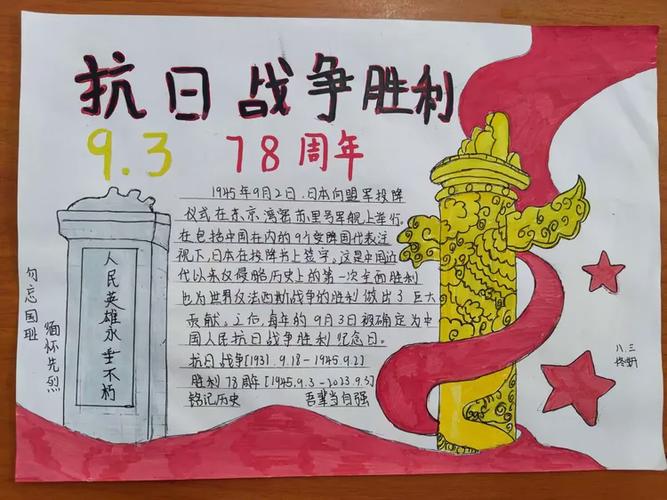 抗日战争胜利
9.3 78周年
1945年9月2日,日本向盟军投降
仪式在东京湾密苏里号军舰上举行.
在包括中国在内的9个受降国代表注
视下,日本在投降书上签字。这是中国近
代以来反侵略历史上的第一次全面胜利
也为世界反法西斯战争的胜利做出了巨大
贡献。之后,每年的9月3日被确定为中
国人民抗日战争胜利纪念日。
抗日战争[1931.9.18-1945.9.2]
胜利78周年[1945.9.3-2023.9.3]
铭记历史 吾辈当自强
人民英雄永垂不朽
勿忘国耻
缅怀先烈
八.三